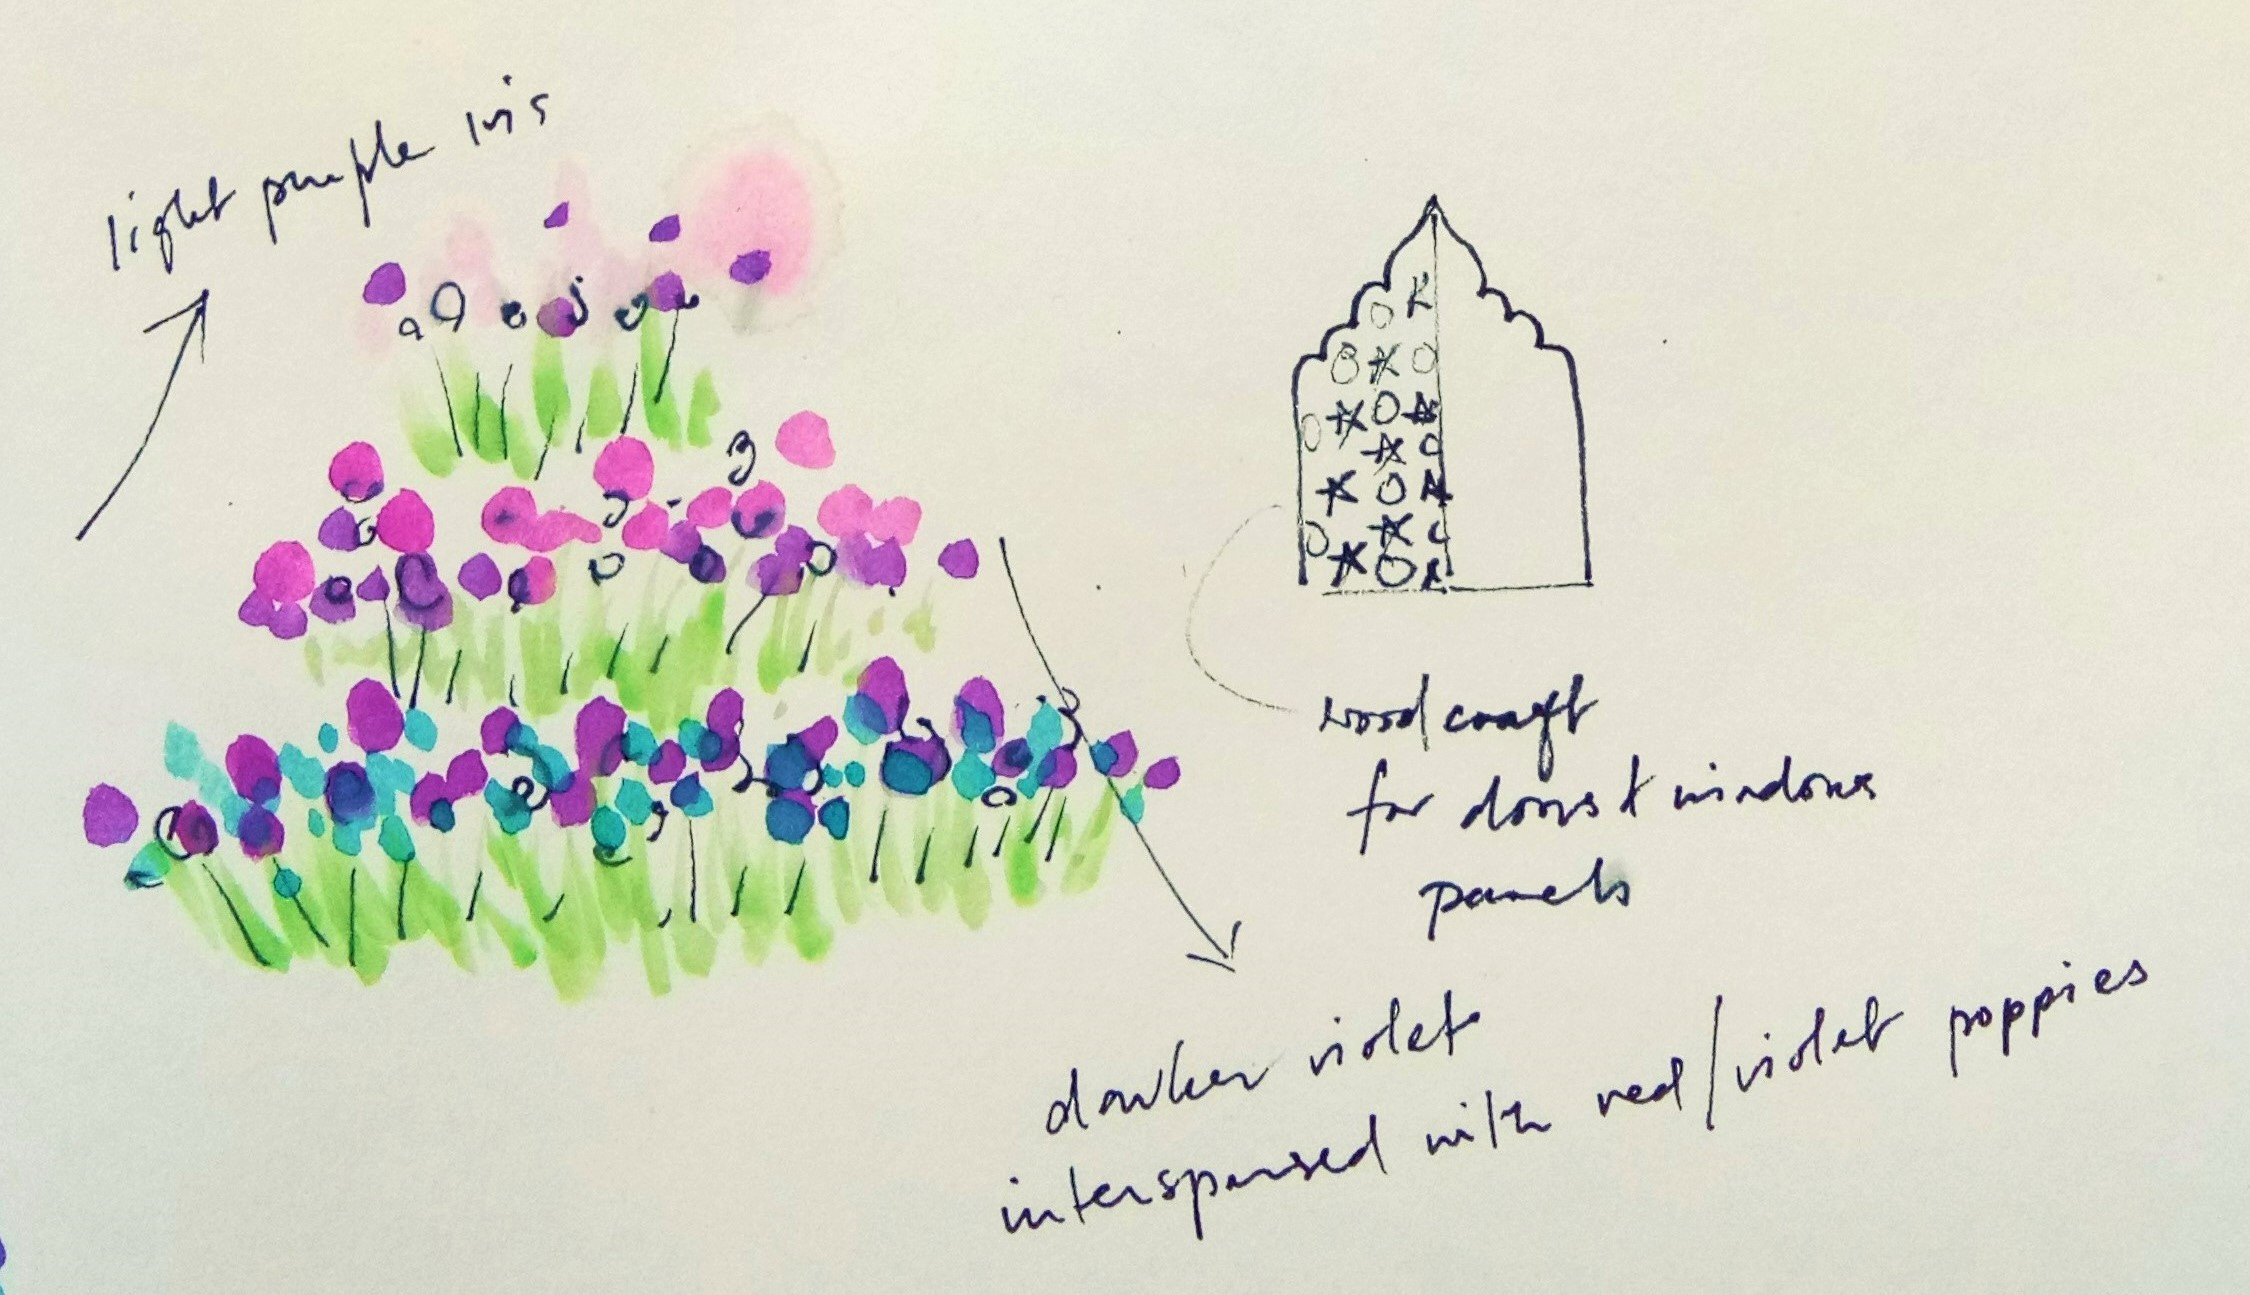 light purple iris
wood craft
for doors & windows
panels
darker violet
interspersed with red/violet poppies